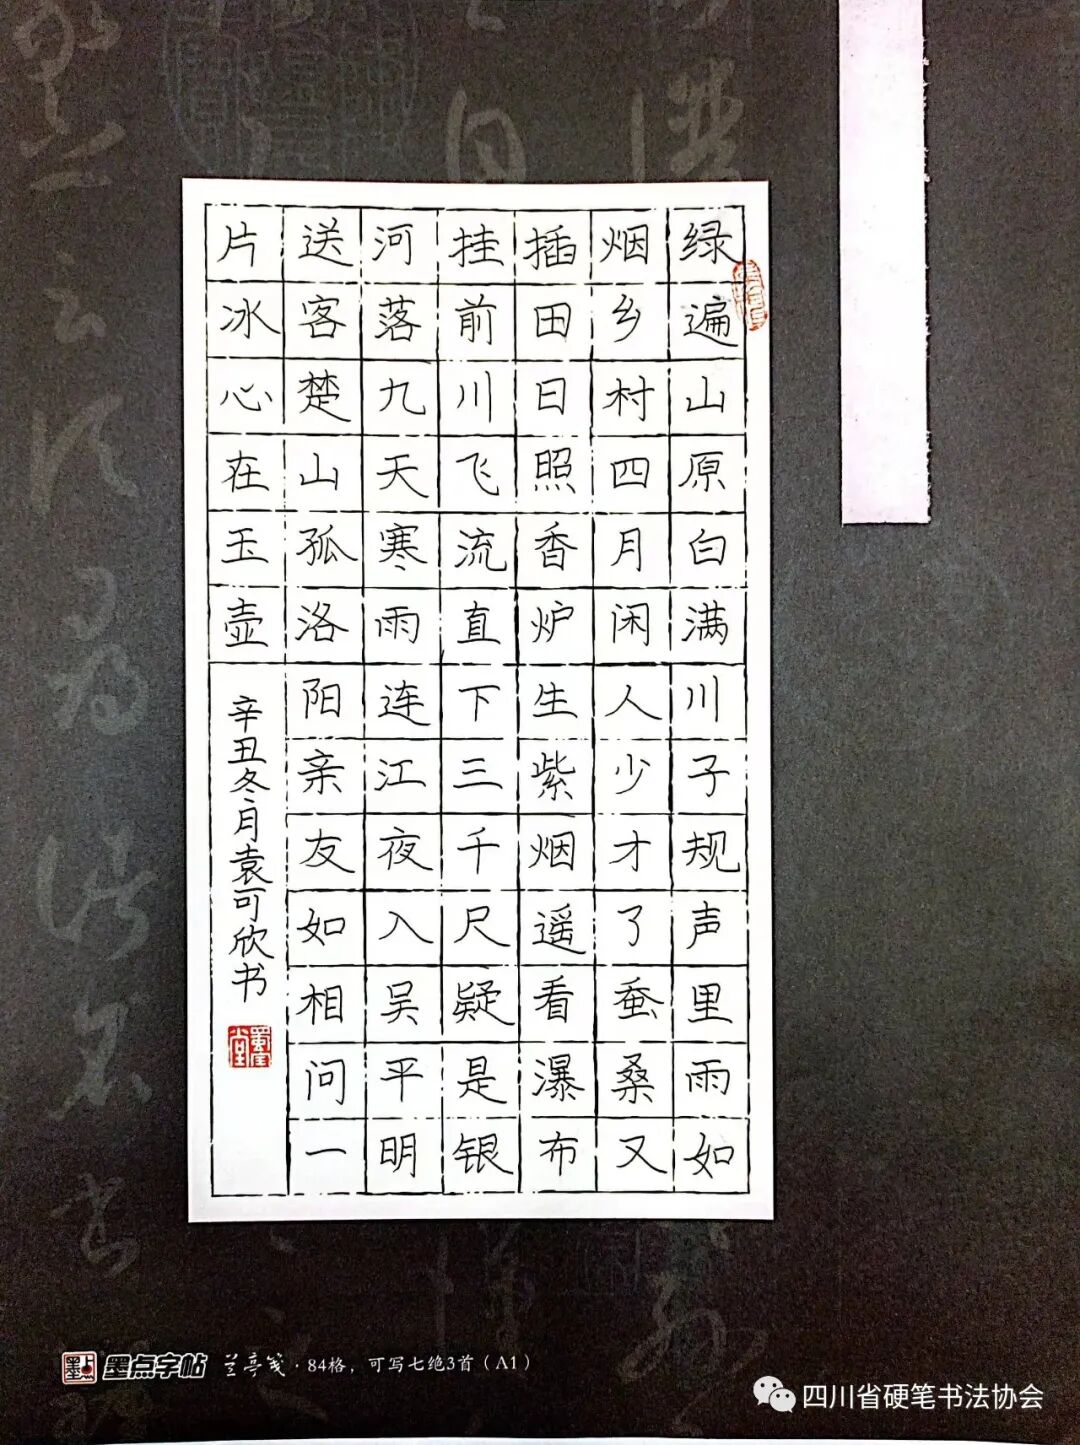 绿遍山原白满川子规声里雨如
烟乡村四月闲人少才了蚕桑又
插田日照香炉生紫烟遥看瀑布
挂前川飞流直下三千尺疑是银
河落九天寒雨连江夜入吴平明
送客楚山孤洛阳亲友如相问一
片冰心在玉壶
辛丑冬月袁可欣书
墨点字帖 兰亭笺·84格，可写七绝3首（A1）
四川省硬笔书法协会